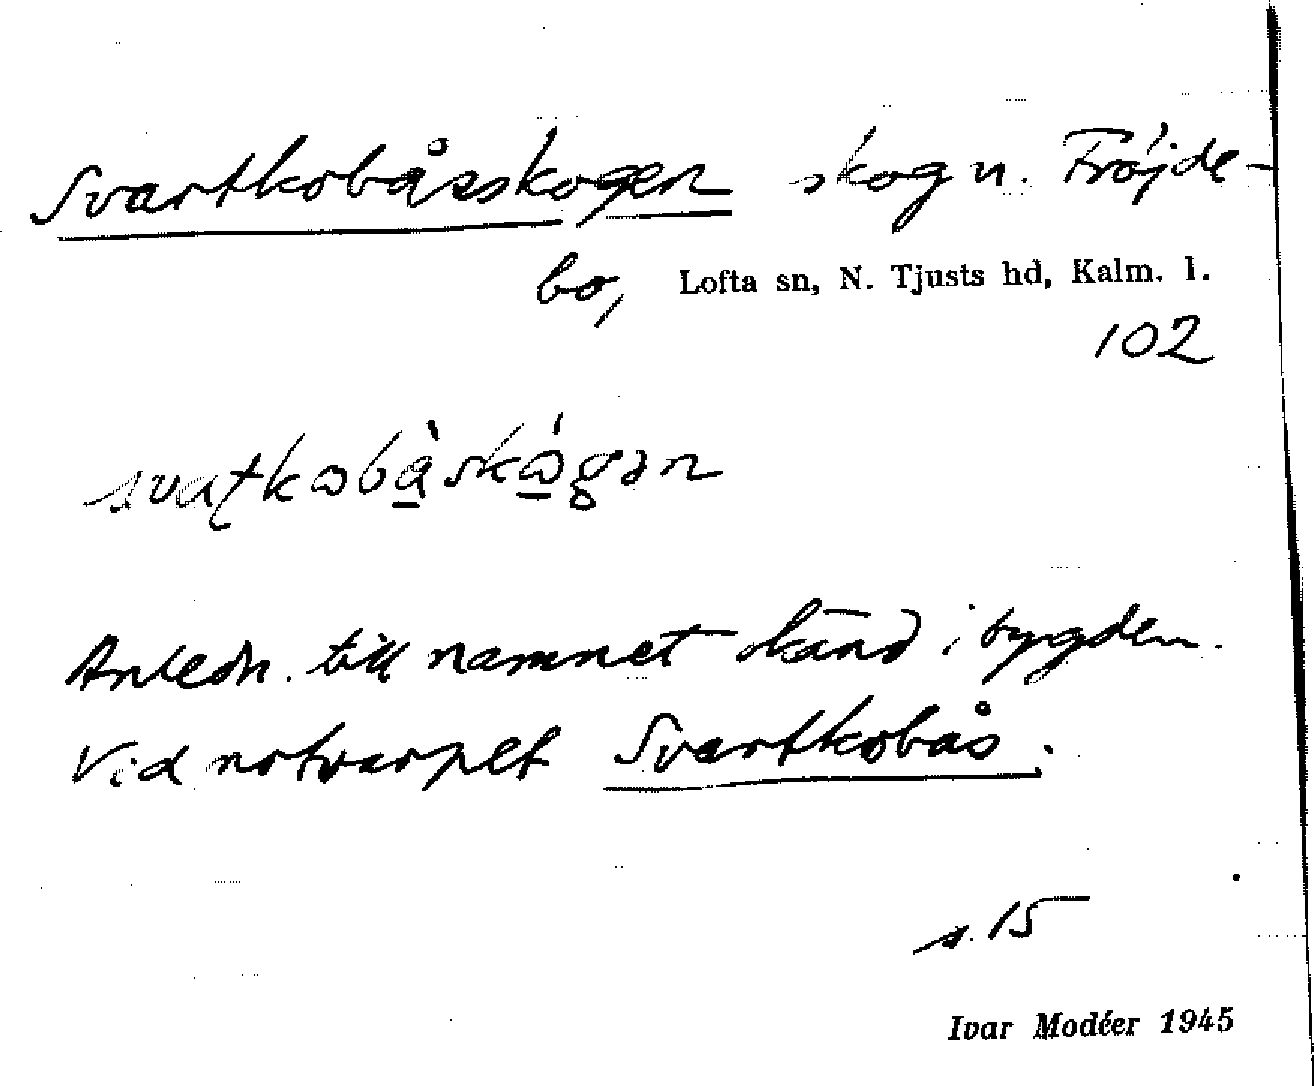 Svartkobåsskogen skog n. Fröjde-
bo, Lofta sn, N. Tjusts hd, Kalm. l.
102
Anledn. till namnet känd i bygden.
Vid notvarpet Svartkobås.
s. 15
Ivar Modéer 1945